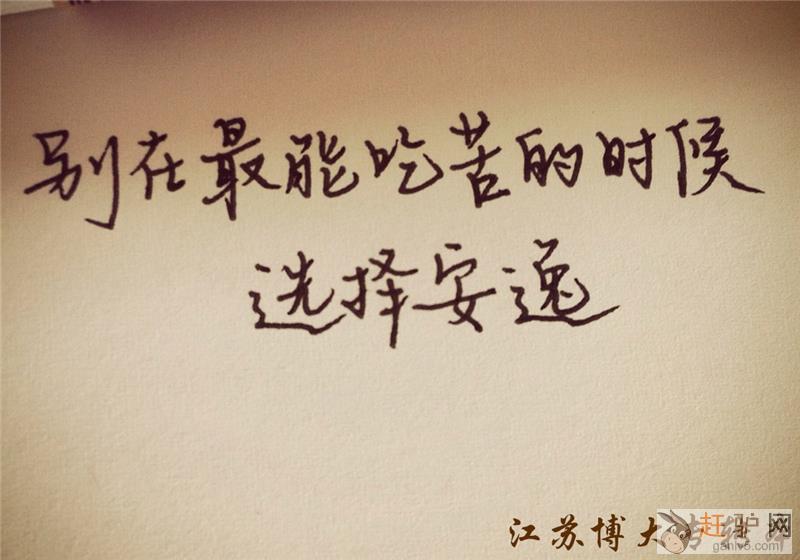 别在最能吃苦的时候
选择安逸
江苏博大
赶驴网
ganlv5.com